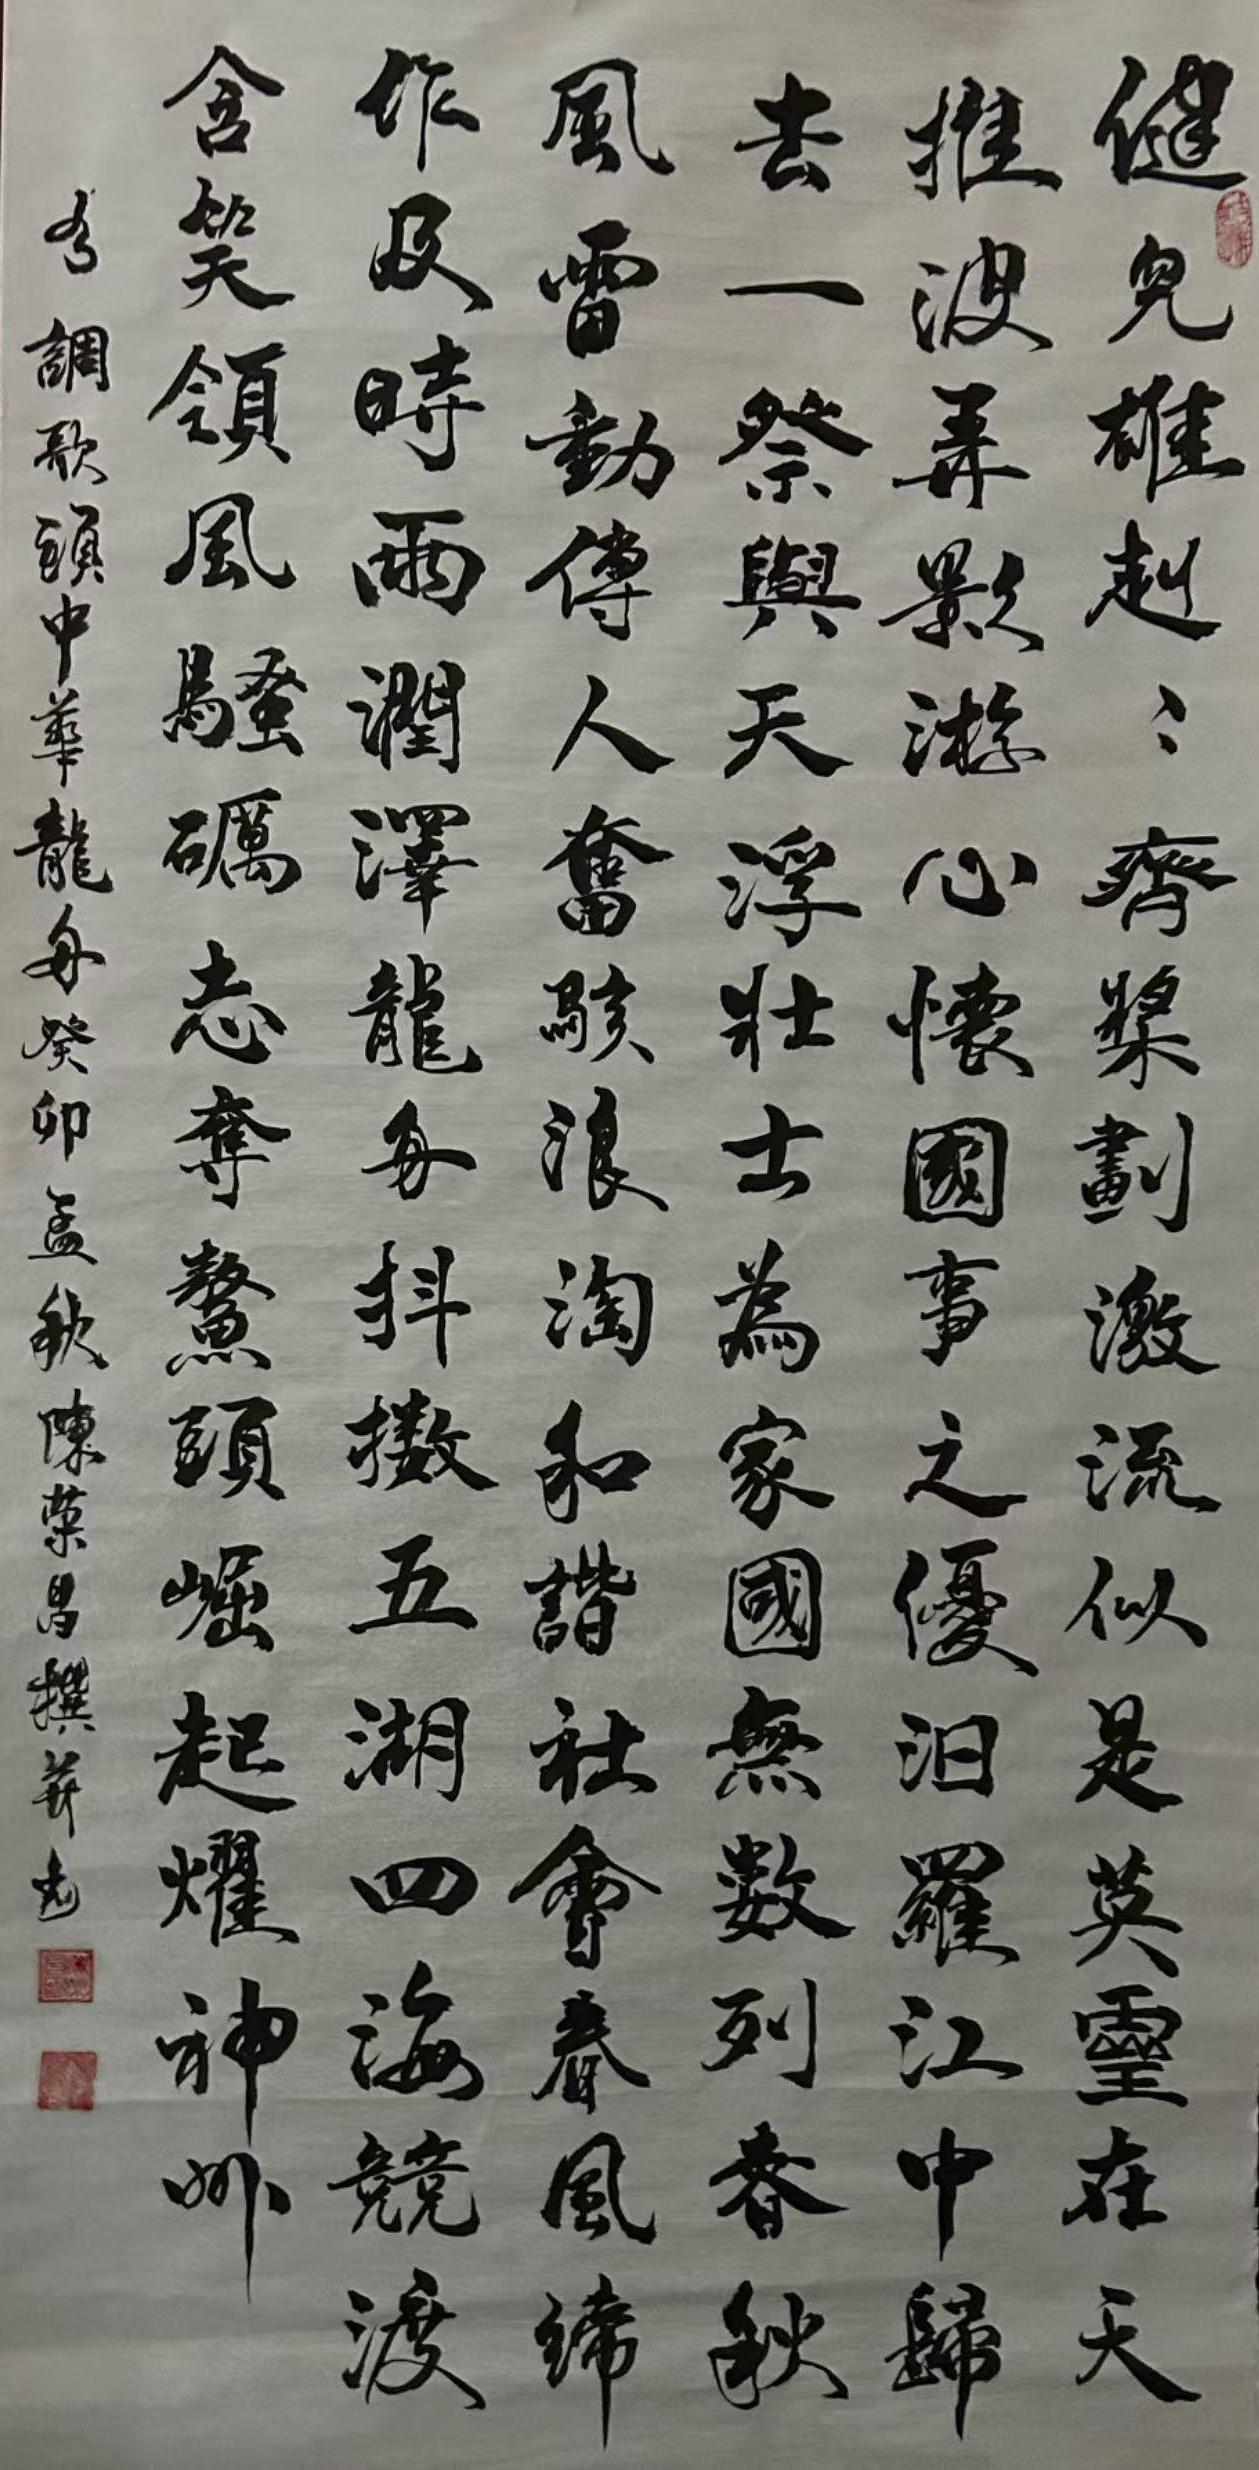 健兒雄赳〻齊槳劃激流似是英靈在天
推波弄影游心懷國事之優汨羅江中歸
去一祭與天浮壯士為家國無數列春秋
風雷動傳人奮駭浪淘和諧社會春風締
作及時雨潤澤龍舟抖擻五湖四海競渡
含笑領風騷礪志奪鰲頭崛起耀神州
調歌頭中華龍舟癸卯孟秋陳榮昌撰并書